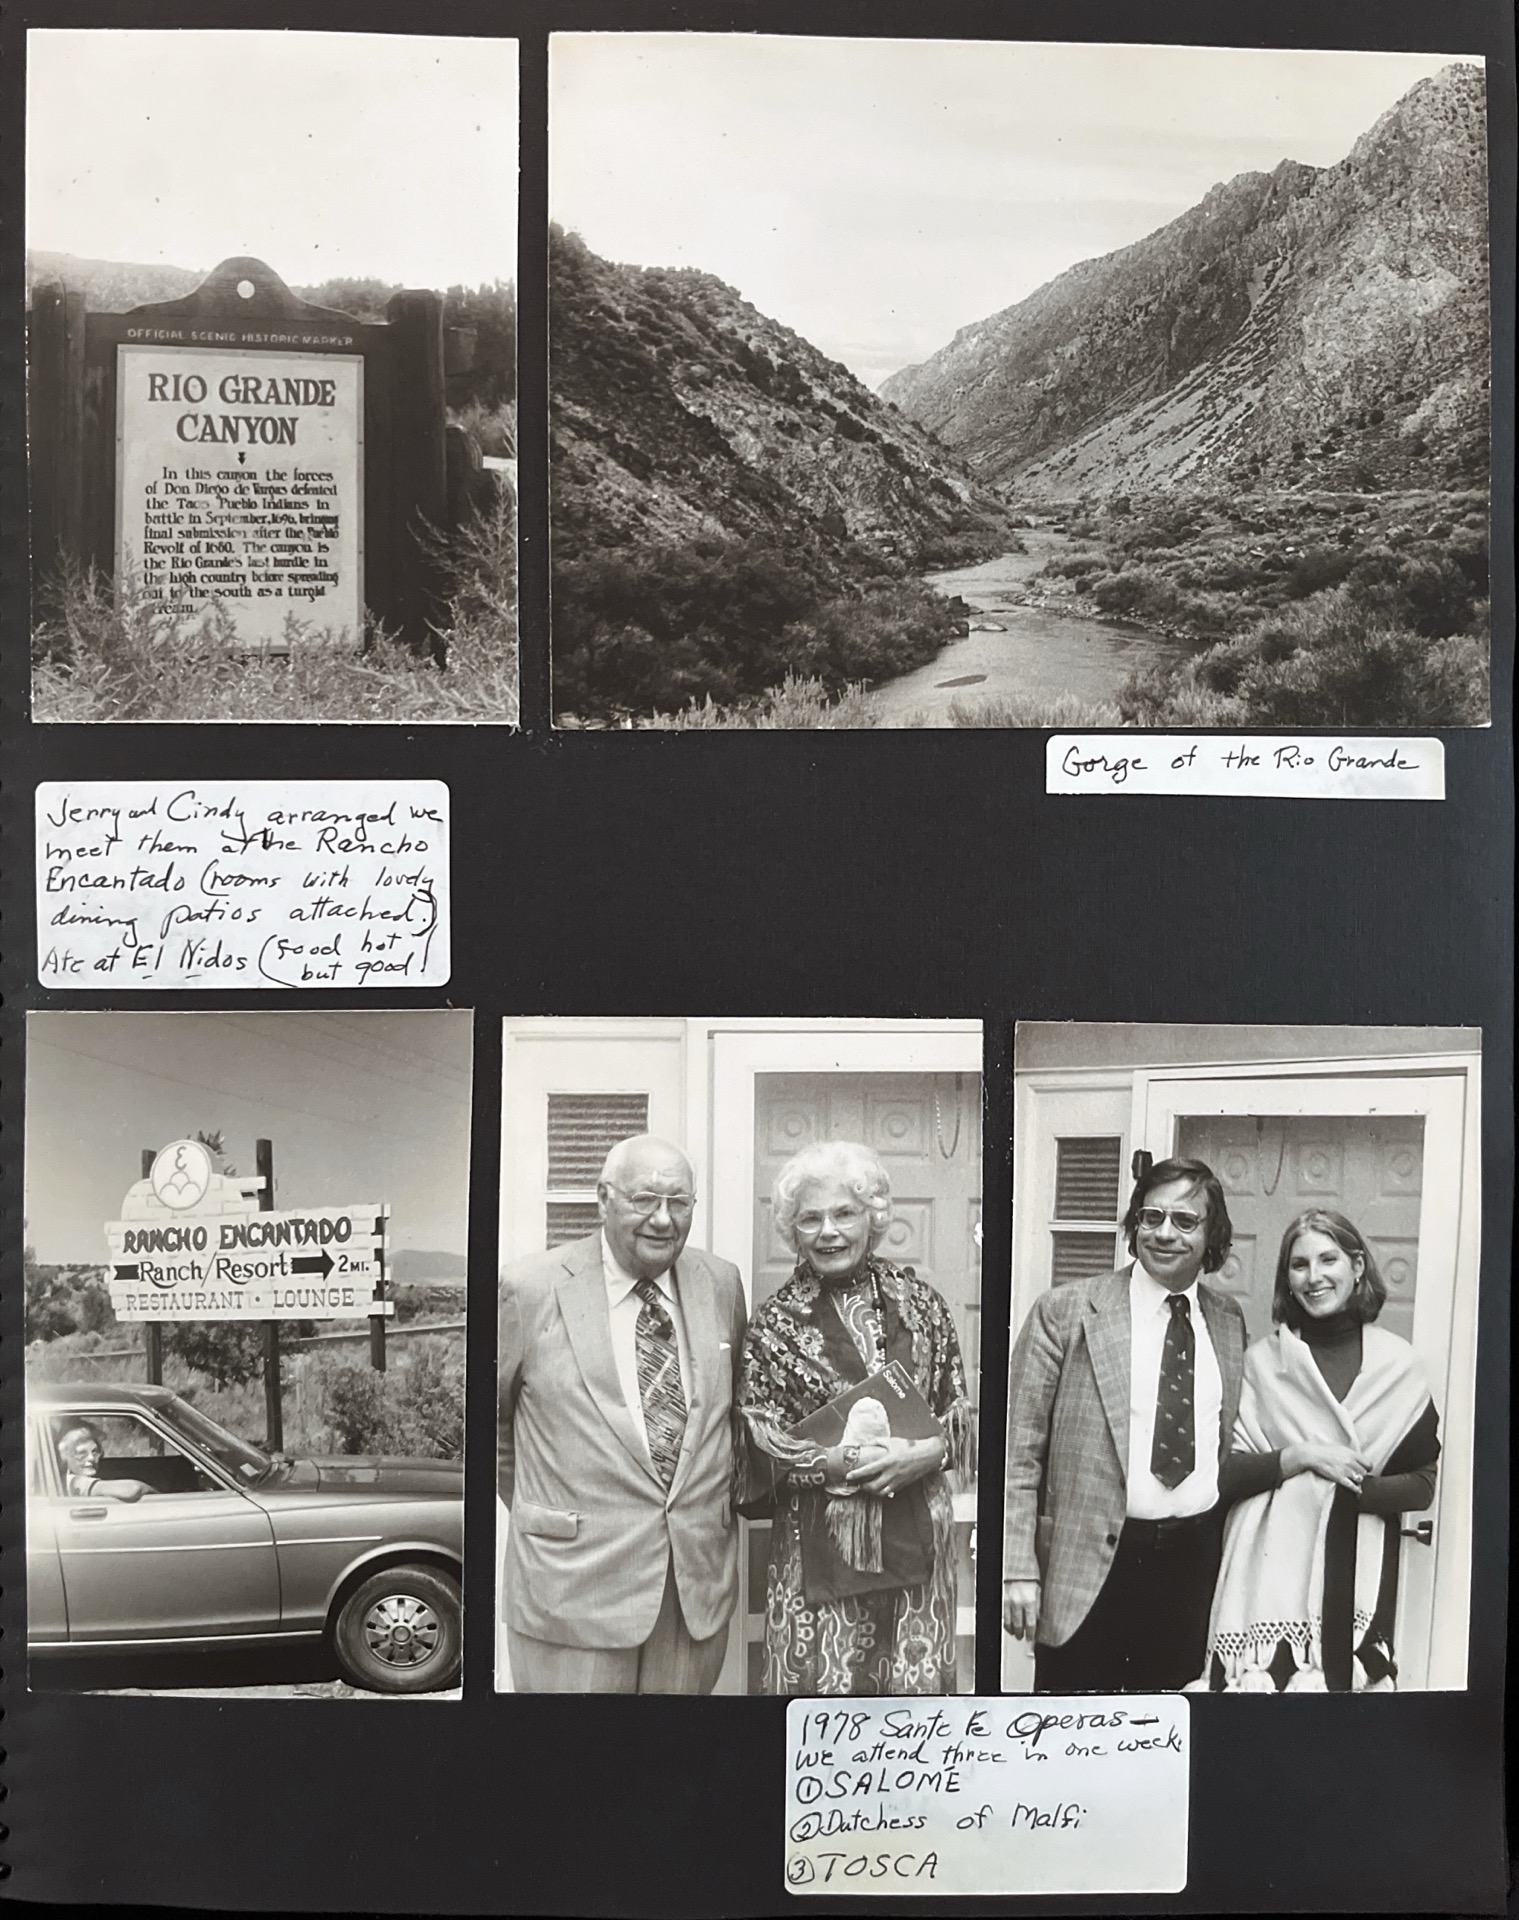 OFFICIAL SCENIC HISTORIC MARKER
RIO GRANDE
CANYON
In this canyon the forces
of Don Diego de Vargas defeated
the Taos Pueblo Indians in
battle in September, 1696, bringing
final submission after the Pueblo
Revolt of 1680. The canyon is
the Rio Grande's last hurdle in
the high country before spreading
out to the south as a turgid
stream.
Gorge of the Rio Grande
Jerry and Cindy arranged we
meet them at the Rancho
Encantado (rooms with lovely
dining patios attached.)
Ate at El Nidos (food hot
but good!
RANCHO ENCANTADO
Ranch/Resort 2 MI.
RESTAURANT • LOUNGE
Salome
1978 Sante Fe Operas—
we attend three in one week.
① SALOMÉ
② Dutchess of Malfi
③ TOSCA